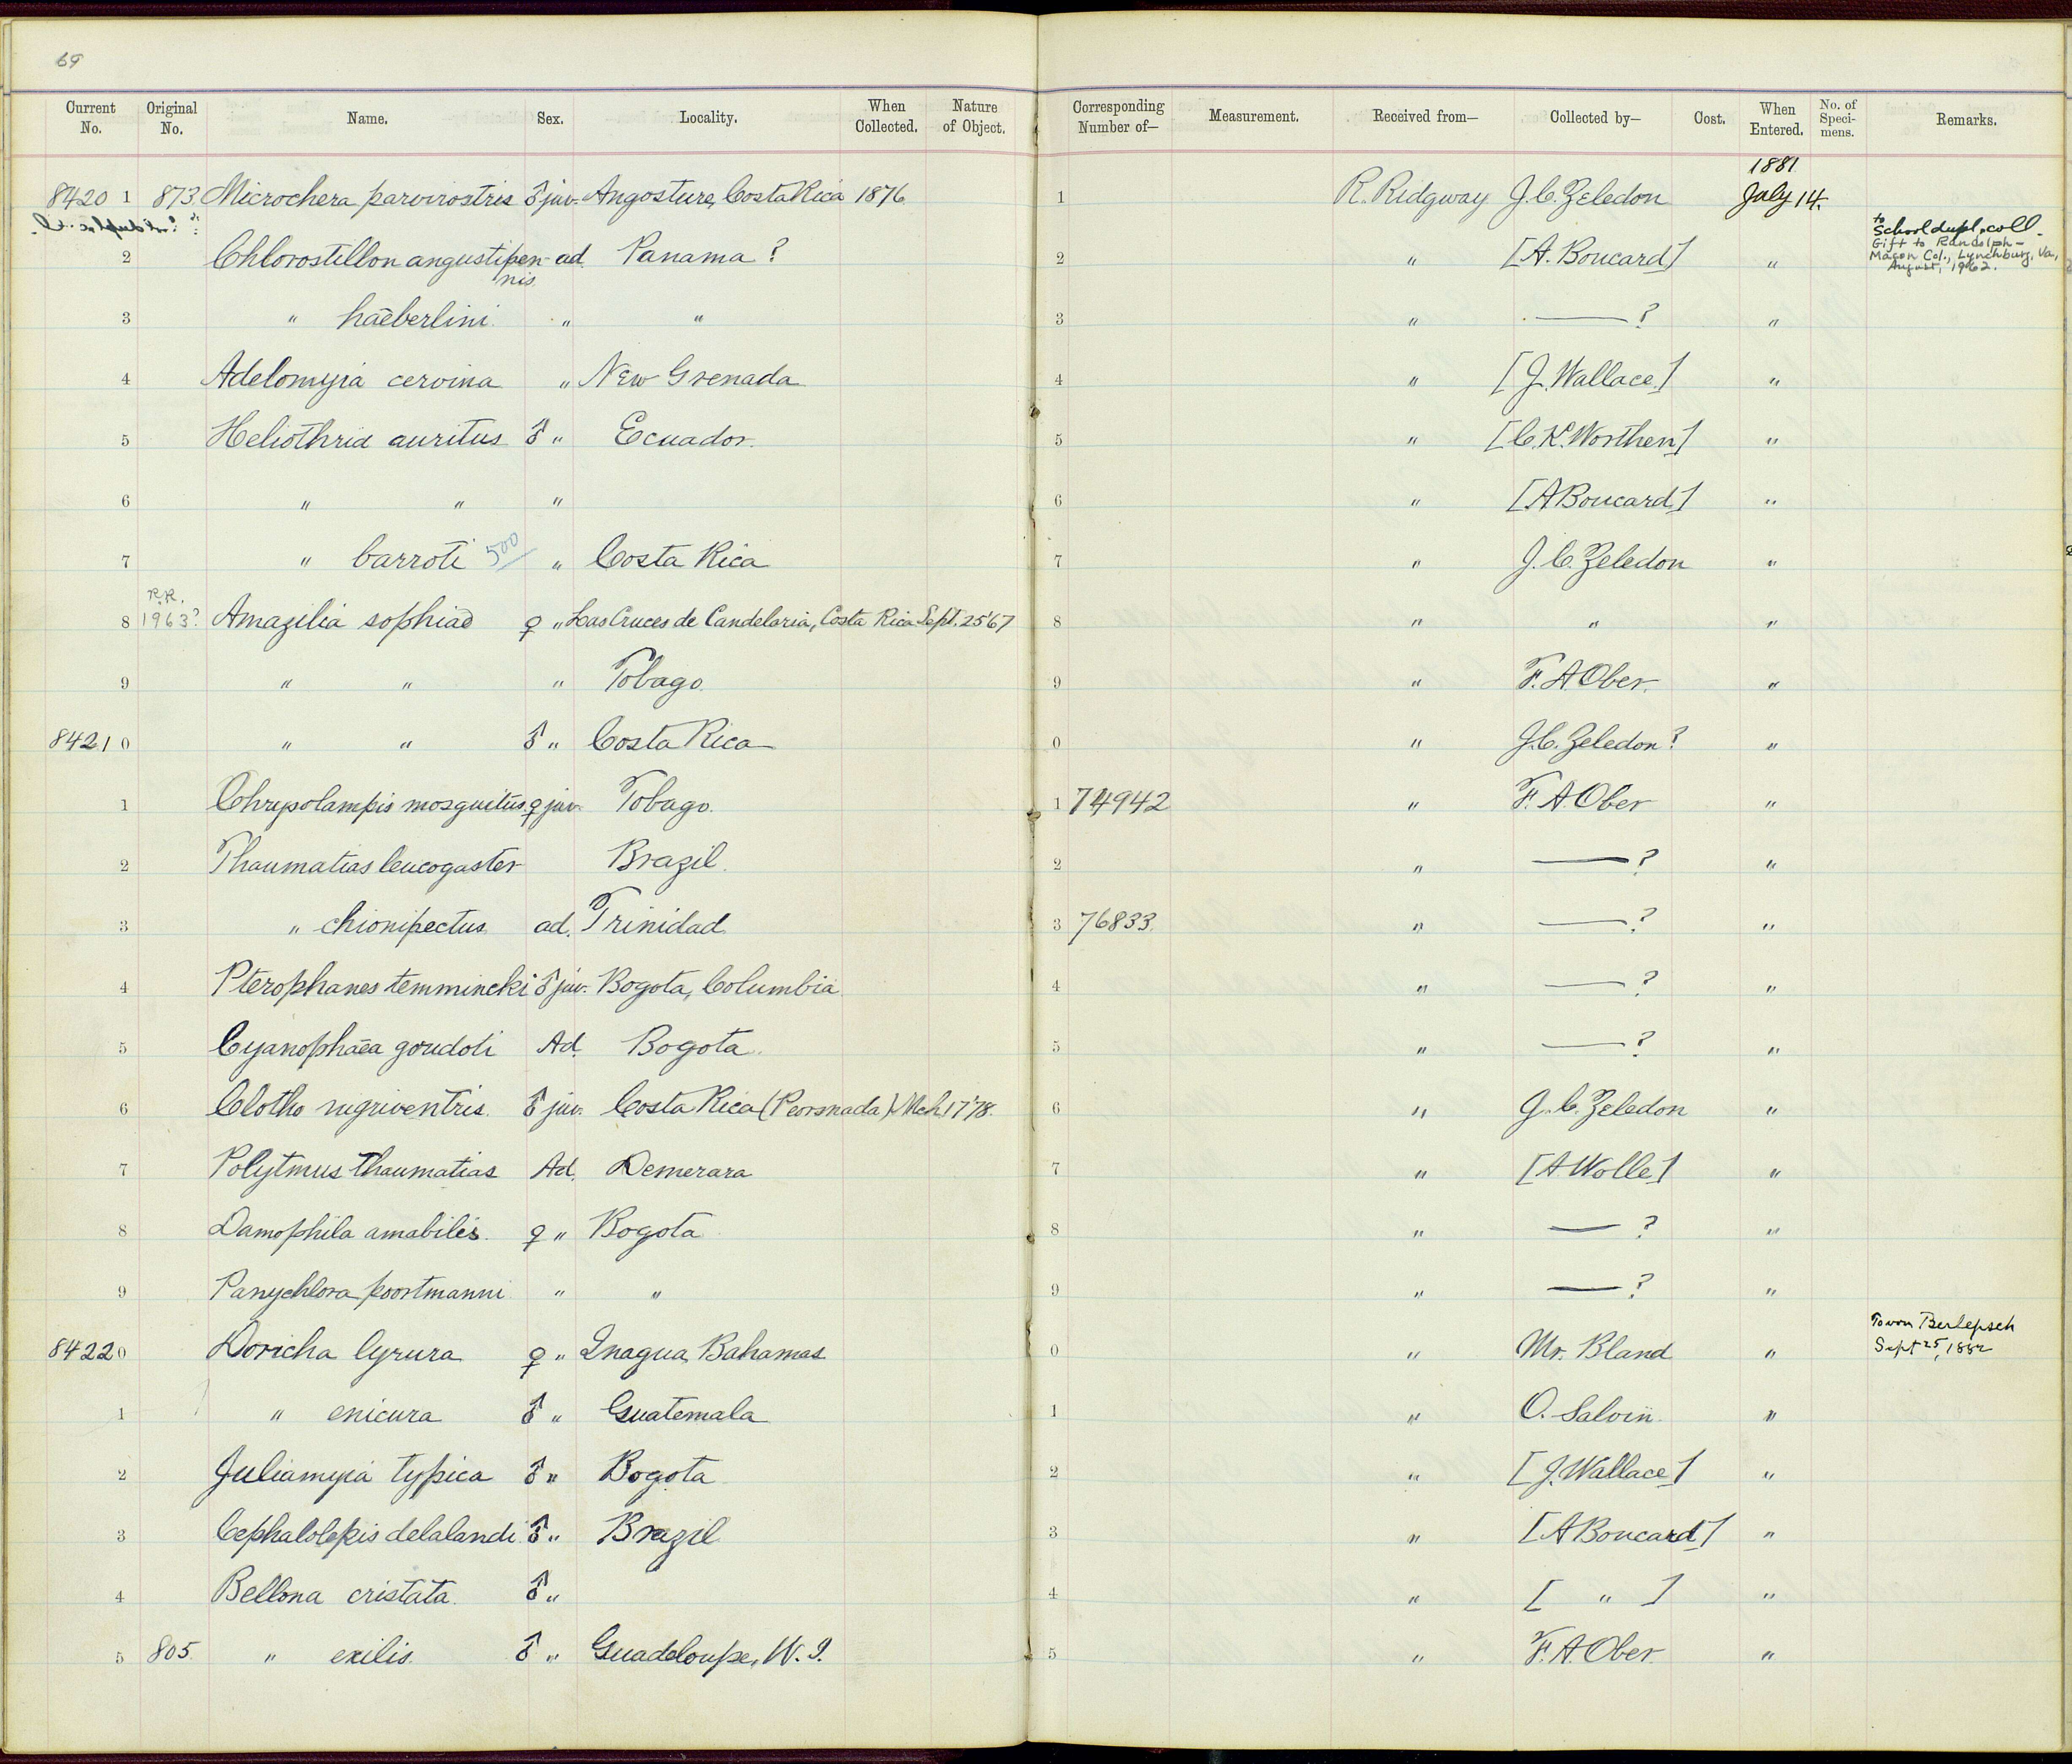 69
Current No. Original No. Name. Sex. Locality. When Collected. Nature of Object. Corresponding Number of— Measurement. Received from— Collected by— Cost. When Entered. No. of Speci-mens. Remarks.
1881
8420 1 873 Microchera parvirostris ♂ juv. Angosture, Costa Rica 1876 1 R. Ridgway J. C. Zeledon July 14.
2 Chlorostillon angustipen- ad. Panama ? 2 " [A. Boucard] " to School dupl. coll.
nis Gift to Randolph-
Macon Col., Lynchburg, Va,
August, 1962.
3 " haeberlini " " 3 " —— ? "
4 Adelomyia cervina " New Grenada 4 " [J. Wallace] "
5 Heliothrix auritus ♂ " Ecuador. 5 " [C. K. Worthen] "
6 " " " 6 " [A Boucard] "
7 " barroti 500 " Costa Rica 7 " J. C. Zeledon "
R.R.
8 1963? Amazilia sophiae ♀ " Las Cruces de Candelaria, Costa Rica Sept. 25 '67 8 " " "
9 " " " Tobago. 9 " F. A Ober. "
8421 0 " " ♂ " Costa Rica 0 " J. C. Zeledon ? "
1 Chrysolampis mosquitus. ♀ juv. Tobago. 1 74942 " F. A. Ober "
2 Thaumatias leucogaster Brazil. 2 " —— ? "
3 " chionipectus ad. Trinidad. 3 76833. " —— ? "
4 Pterophanes temmincki ♂ juv. Bogota, Columbia 4 " —— ? "
5 Cyanophaea goudoti Ad. Bogota. 5 " —— ? "
6 Clotho nigriventris. ♂ juv. Costa Rica (Peorsnada) Mch 17 '78. 6 " J. C. Zeledon "
7 Polytmus Thaumatias Ad. Demerara 7 " [A Wolle] "
8 Damophila amabilis. ♀ " Bogota 8 " —— ? "
9 Panychlora poortmanni " " 9 " —— ? "
8422 0 Doricha lyrura ♀ " Inagua, Bahamas 0 " Mr. Bland " To von Berlepsch
Sept 25, 1882
1 " enicura ♂ " Guatemala 1 " O. Salvin. "
2 Juliamyia typica ♂ " Bogota 2 " [J. Wallace] "
3 Cephalolepis delalandi ♂ " Brazil 3 " [A Boucard] "
4 Bellona cristata. ♂ " 4 " [ " ] "
5 805. " exilis. ♂ " Guadeloupe, W. I. 5 " F. A. Ober. "